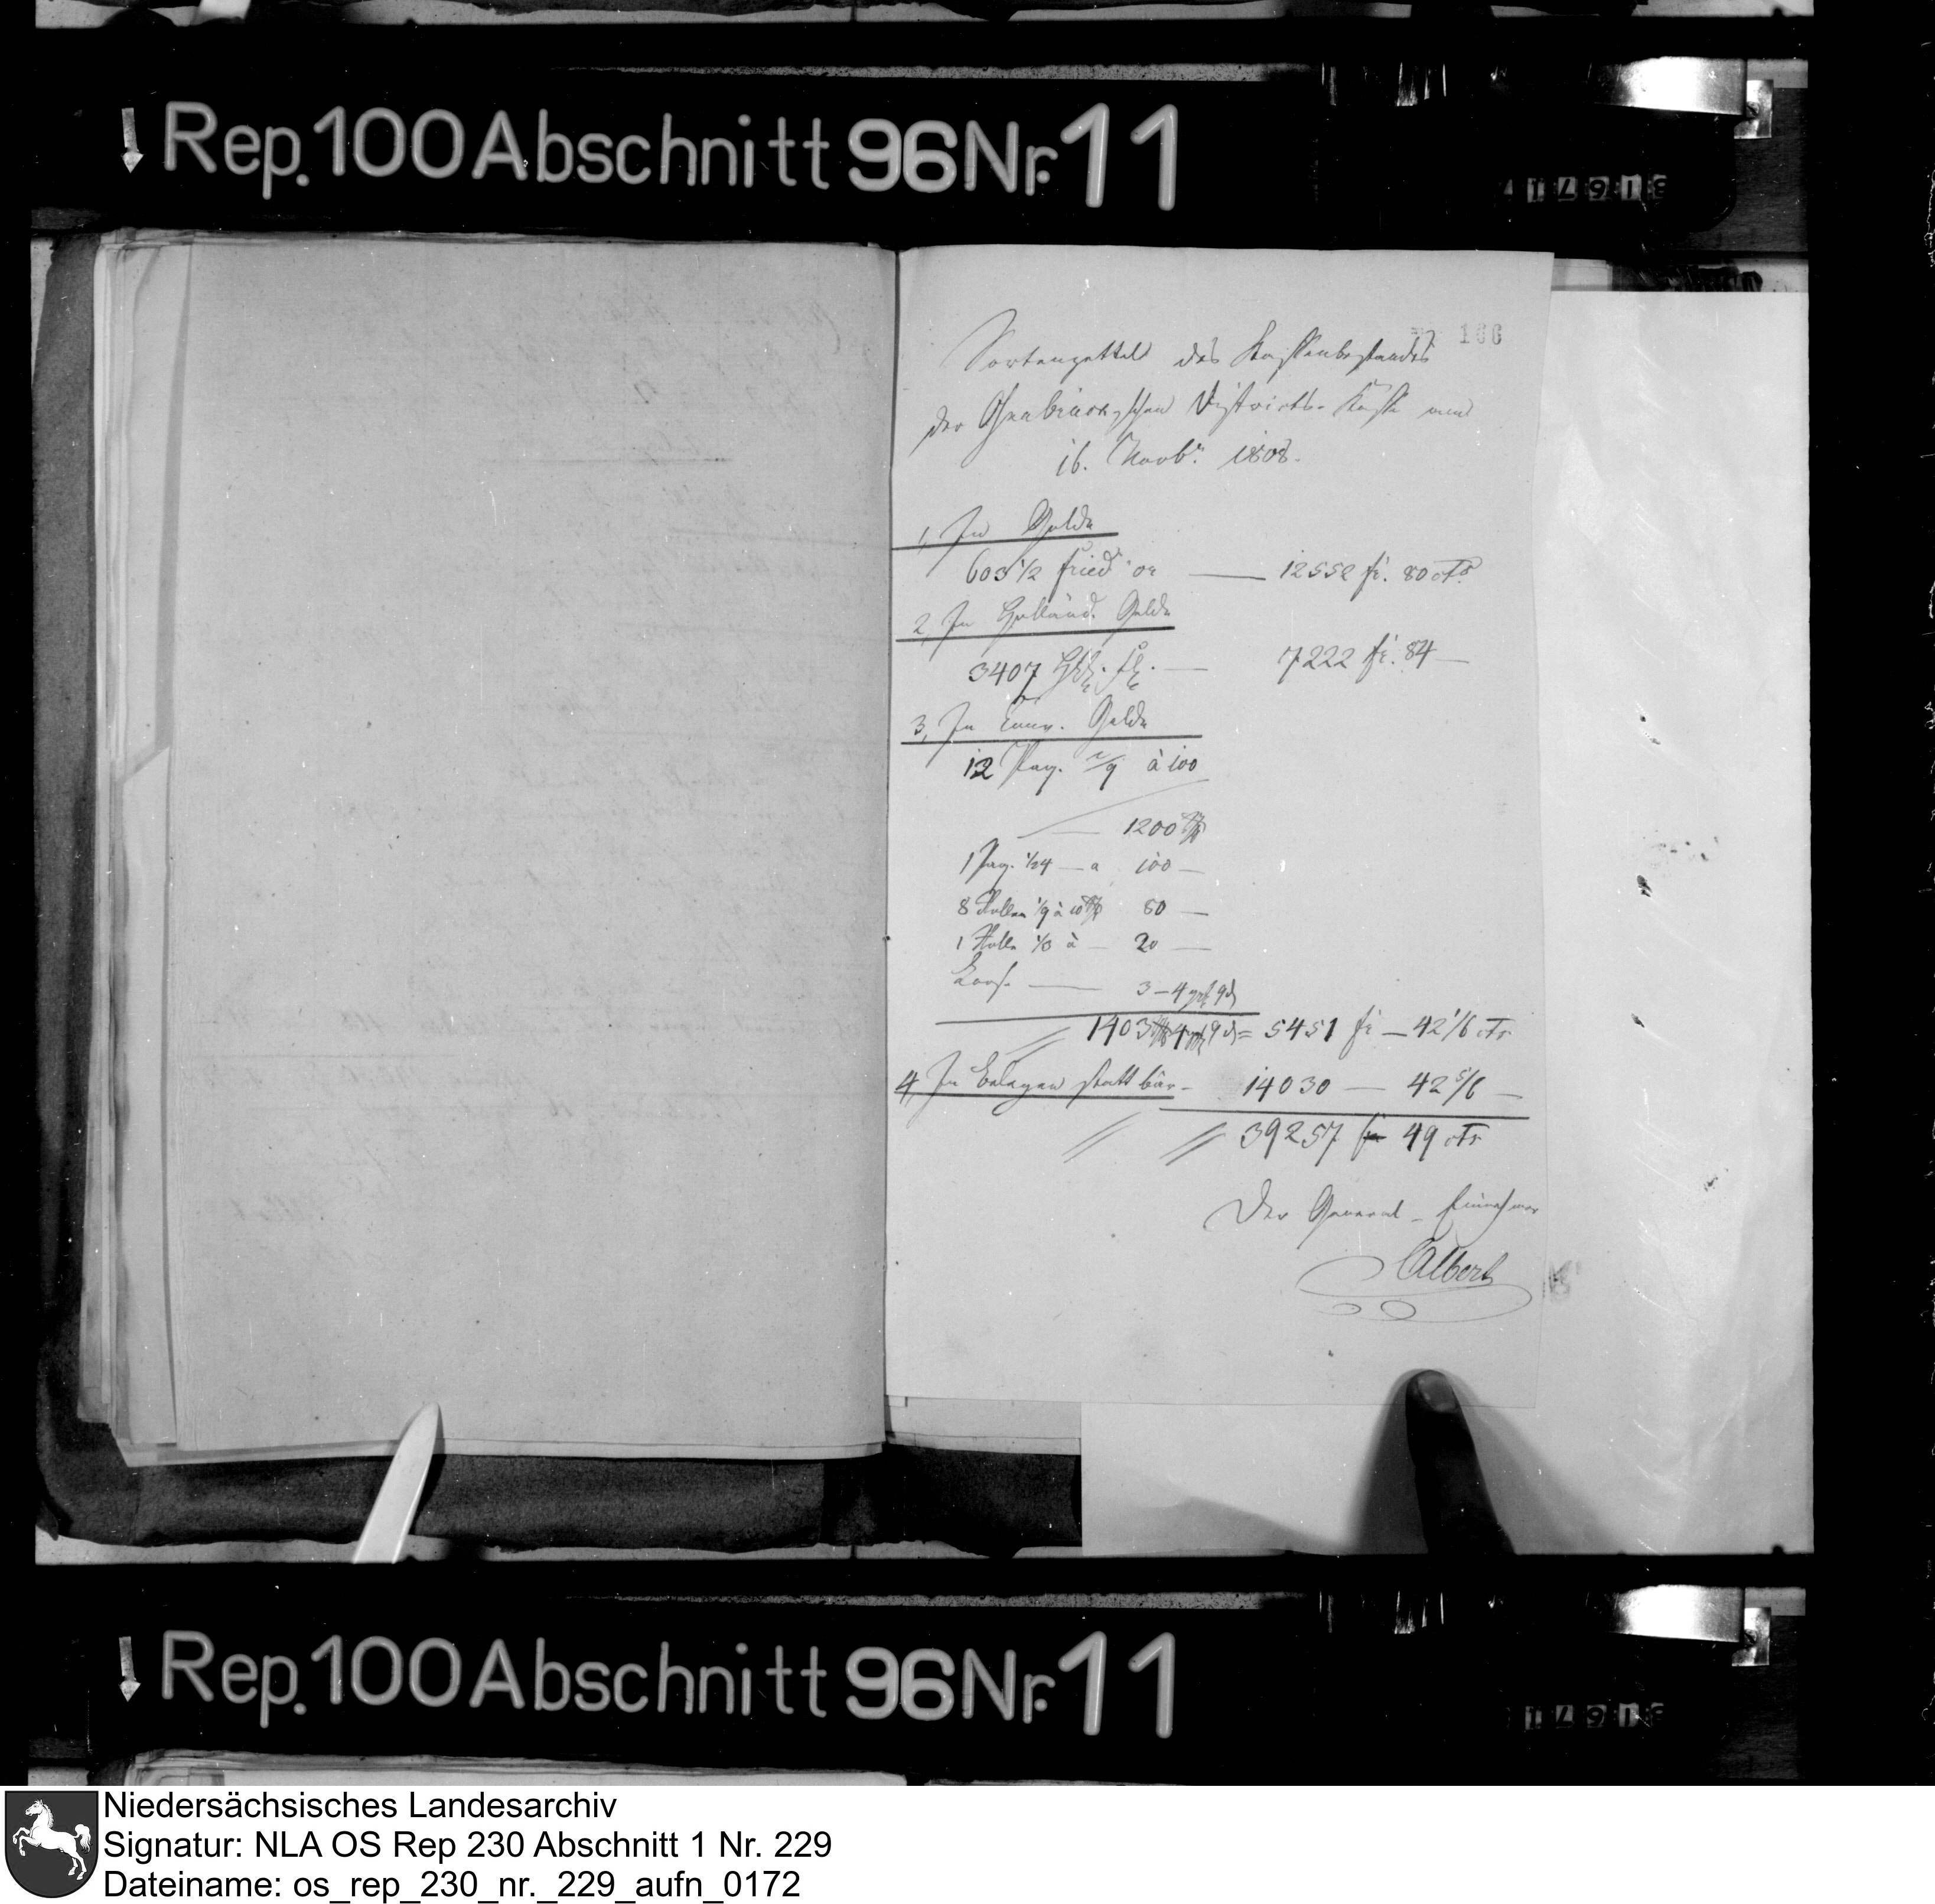 Rep. 100 Abschnitt 96 Nr. 11
166
Sortenzettel des Kassenbestandes
der Osnabrückschen Districts-Kasse vom
16. Novbr. 1808.
1, In Golde
603 1/2 fried'or — 12552 fr. 80 cts
2, In Holländ. Gelde
3407 Holl. fl. — 7222 fr. 84 —
3, In Conv. Gelde
12 Paq. à 100
— 1200 rthlr
1 Paq. 1/24 — a 100 —
8 Rollen à 10 rthlr 80 —
1 Rolle à — 20 —
— 3 — 4 ggr 9 d
1403 rthlr 4 ggr 9 d = 5451 fr — 42 1/6 cts
4, In Belegen statt bar — 14030 — 42 5/6 —
39257 fr 49 cts
Der General-Einnehmer
Albert
Rep. 100 Abschnitt 96 Nr. 11
Niedersächsisches Landesarchiv
Signatur: NLA OS Rep 230 Abschnitt 1 Nr. 229
Dateiname: os_rep_230_nr._229_aufn_0172